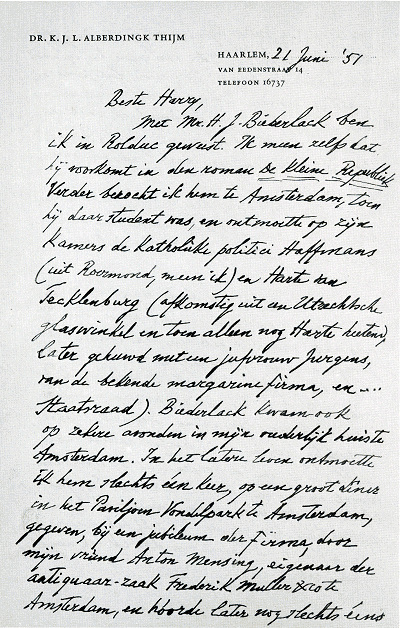 DR. K. J. L. ALBERDINGK THIJM
HAARLEM, 21 Juni '51
VAN EEDENSTRAAT 14
TELEFOON 16737
Beste Harry,
Met Mr. H. J. Biederlack ben
ik in Rolduc geweest. Ik meen zelfs dat
hij voorkomt in den roman De kleine Republiek
Verder bezocht ik hem te Amsterdam, toen
hij daar student was, en ontmoette op zijn
kamers de katholieke politici Haffmans
(uit Roermond, meen ik) en Harte van
Tecklenburg (afkomstig uit een Utrechtsche
glaswinkel en toen alleen nog Harte heetend,
later gehuwd met een jufvrouw Jurgens,
van de bekende margarine firma, en ....
Staatsraad). Biederlack kwam ook
op zekere avonden in mijn ouderlijk huis te
Amsterdam. In het latere leven ontmoette
ik hem slechts één keer, op een groot diner
in het Paviljoen Vondelpark te Amsterdam,
gegeven, bij een jubileum der firma, door
mijn vriend Anton Mensing, eigenaar der
antiquaar-zaak Frederik Muller & Co te
Amsterdam, en hoorde later nog slechts ééns